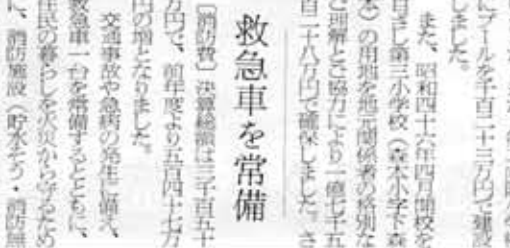 にプールを千百二十三万円で建設
しました。
また、昭和四十六年四月開校を
目ざし第三小学校（森本小学下森
本）の用地を地元関係者の格別な
ご理解とご協力により一億七十五
百二十八万円で確保しました。さ
救急車を常備
〔消防費〕決算総額は三千百五十
万円で、前年度より五百四十七万
円の増となりました。
交通事故や急病の発生に備え、
救急車一台を常備するとともに、
住民の暮らしを火災から守るため
に、消防施設（貯水そう・消防無